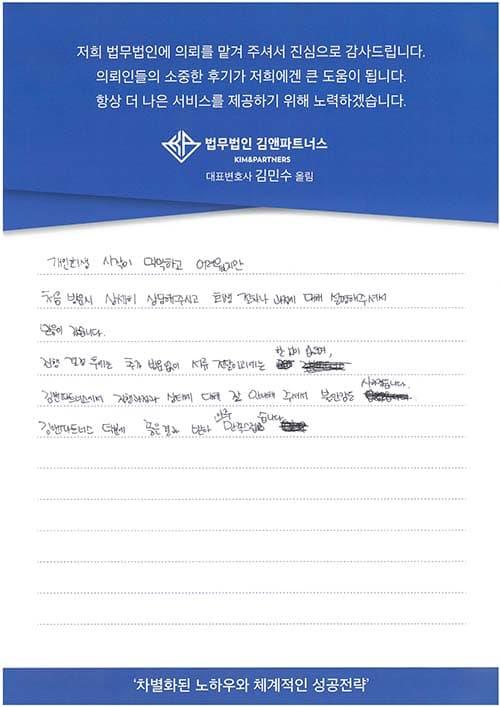 저희 법무법인에 의뢰를 맡겨 주셔서 진심으로 감사드립니다.
의뢰인들의 소중한 후기가 저희에겐 큰 도움이 됩니다.
항상 더 나은 서비스를 제공하기 위해 노력하겠습니다.
법무법인 김앤파트너스
KIM&PARTNERS
대표변호사 김민수 올림
개인회생 시작이 막막하고 어려웠지만
처음 방문시 상세히 상담해주시고 진행 절차나 대해 설명해주셔서
믿음이 갔습니다.
진행 과정 중에는 추가 방문없이 서류 전달이외에는 한 일이 없으며,
김앤파트너스에서 진행 상태에 대해 잘 안내해 주셔서 불안감은 사라졌습니다.
김앤파트너스 덕분에 좋은결과 받아 아주 만족스럽습니다.
'차별화된 노하우와 체계적인 성공전략'